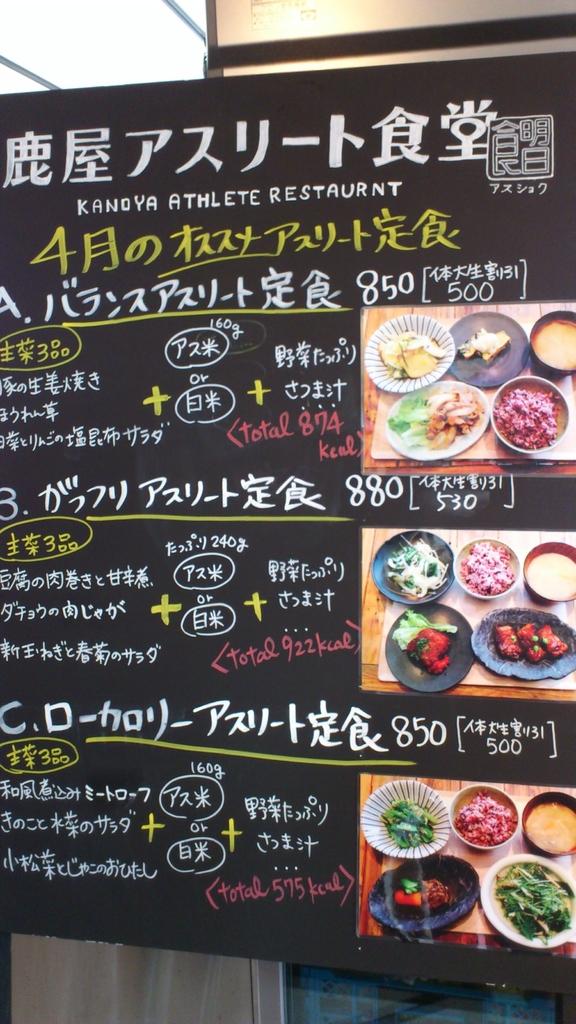 鹿屋アスリート食堂
明日食民
アスショク
KANOYA ATHLETE RESTAURNT
4月のオススメアスリート定食
A. バランスアスリート定食 850 [体大生割引 500]
主菜3品
豚の生姜焼き
ほうれん草
白菜とりんごの塩昆布サラダ
+
160g
アス米
or
白米
+
野菜たっぷり
さつま汁
...
<total 874 kcal>
B. がっつりアスリート定食 880 [体大生割引 530]
主菜3品
豆腐の肉巻きと甘辛煮
ダチョウの肉じゃが
新玉ねぎと春菊のサラダ
+
たっぷり240g
アス米
or
白米
+
野菜たっぷり
さつま汁
...
<total 922kcal>
C. ローカロリーアスリート定食 850 [体大生割引 500]
主菜3品
和風煮込みミートローフ
きのこと水菜のサラダ
小松菜とじゃこのおひたし
+
160g
アス米
or
白米
+
野菜たっぷり
さつま汁
...
<total 575kcal>